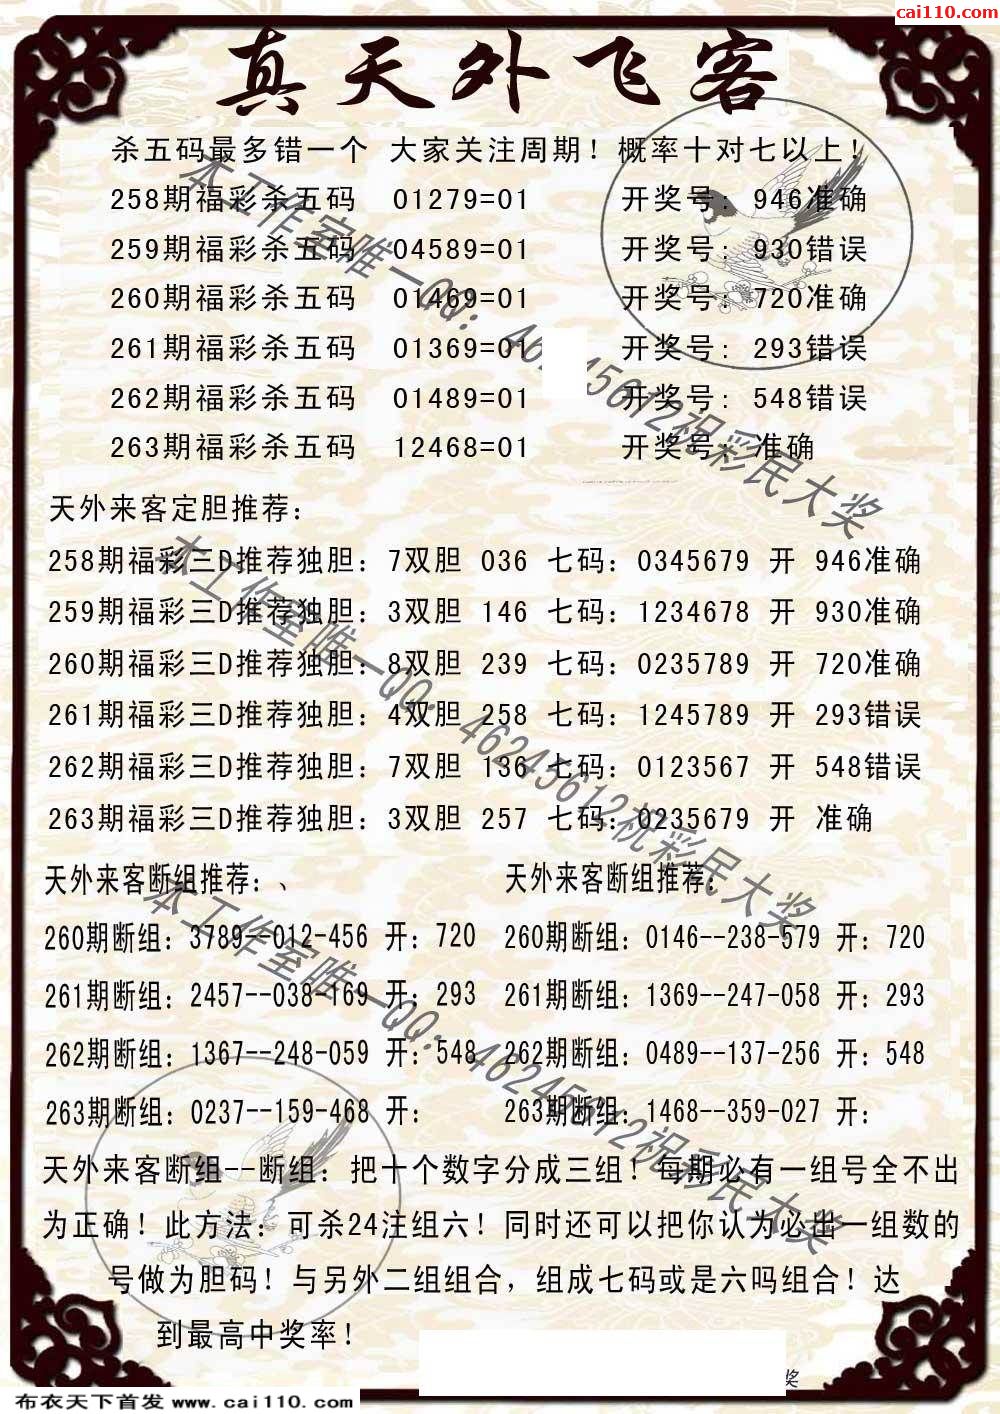 cai110.com
真天外飞客
杀五码最多错一个 大家关注周期！概率十对七以上！
258期福彩杀五码 01279=01 开奖号：946准确
259期福彩杀五码 04589=01 开奖号：930错误
260期福彩杀五码 01469=01 开奖号：720准确
261期福彩杀五码 01369=01 开奖号：293错误
262期福彩杀五码 01489=01 开奖号：548错误
263期福彩杀五码 12468=01 开奖号：准确
天外来客定胆推荐：
258期福彩三D推荐独胆：7双胆 036 七码：0345679 开 946准确
259期福彩三D推荐独胆：3双胆 146 七码：1234678 开 930准确
260期福彩三D推荐独胆：8双胆 239 七码：0235789 开 720准确
261期福彩三D推荐独胆：4双胆 258 七码：1245789 开 293错误
262期福彩三D推荐独胆：7双胆 136 七码：0123567 开 548错误
263期福彩三D推荐独胆：3双胆 257 七码：0235679 开 准确
天外来客断组推荐：、 天外来客断组推荐：
260期断组：3789--012-456 开：720 260期断组：0146--238-579 开：720
261期断组：2457--038-169 开：293 261期断组：1369--247-058 开：293
262期断组：1367--248-059 开：548 262期断组：0489--137-256 开：548
263期断组：0237--159-468 开： 263期断组：1468--359-027 开：
天外来客断组--断组：把十个数字分成三组！每期必有一组号全不出
为正确！此方法：可杀24注组六！同时还可以把你认为必出一组数的
号做为胆码！与另外二组组合，组成七码或是六吗组合！达
到最高中奖率！
本工作室唯一QQ：46245612祝彩民大奖
本工作室唯一QQ：46245612祝彩民大奖
本工作室唯一QQ：46245612祝彩民大奖
奖
布衣天下首发 www.cai110.com